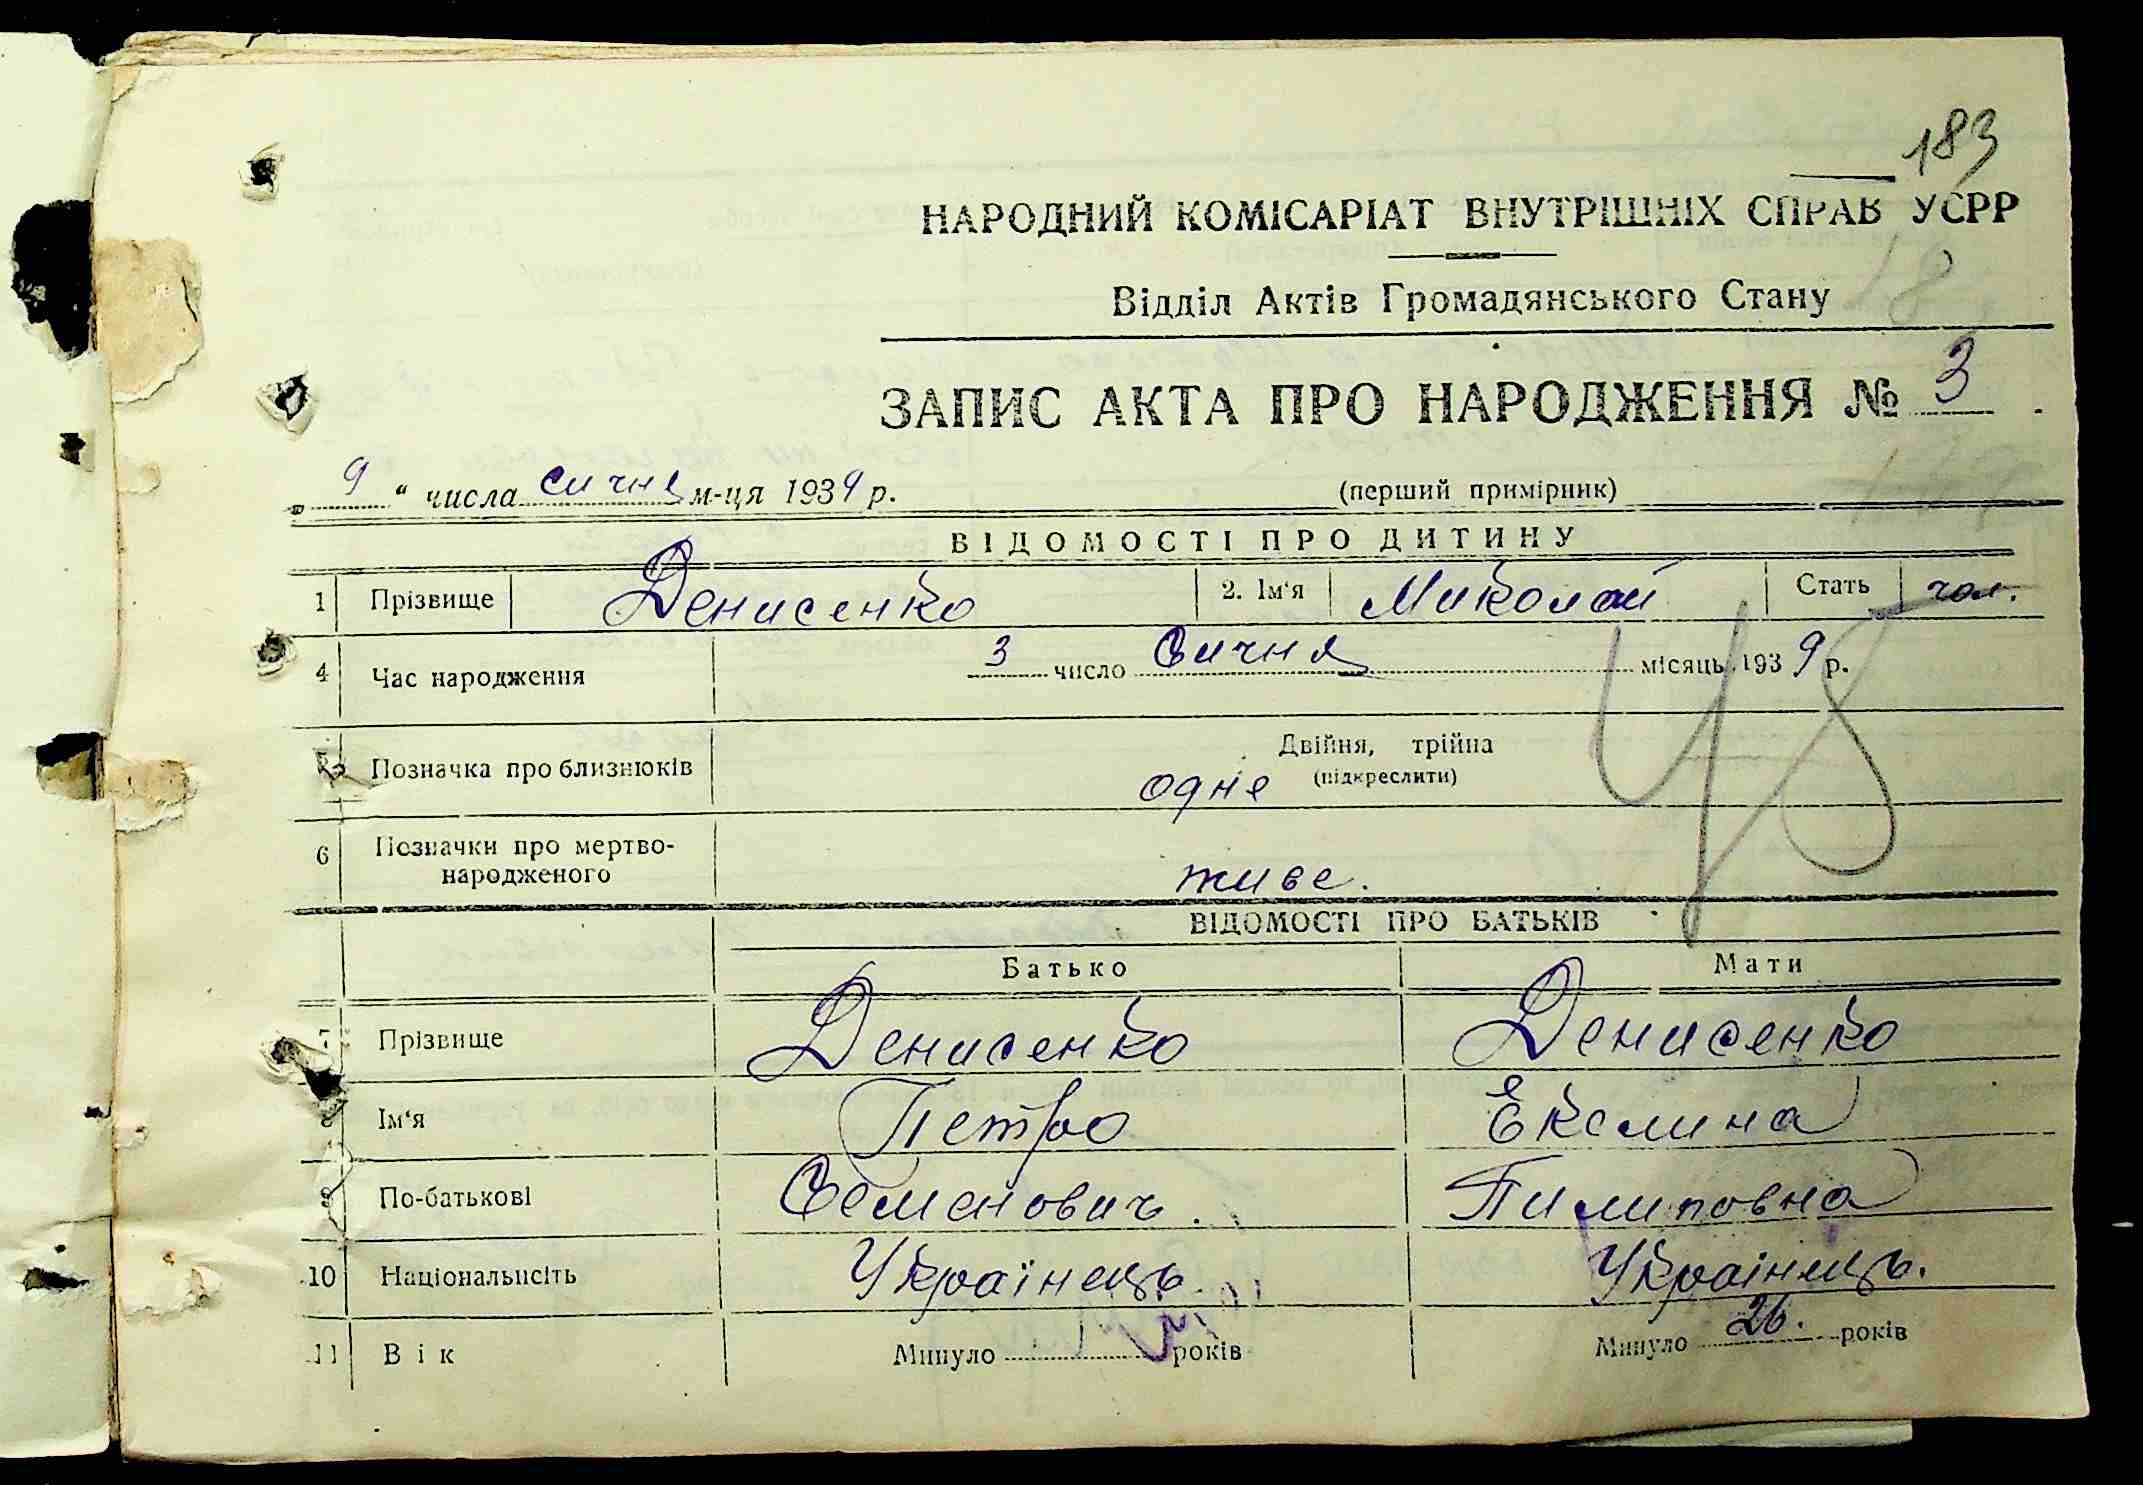 183
НАРОДНИЙ КОМІСАРІАТ ВНУТРІШНІХ СПРАВ УСРР
Відділ Актів Громадянського Стану
ЗАПИС АКТА ПРО НАРОДЖЕННЯ № 3
„ 9 “ числа січня м-ця 1939 р. (перший примірник)
ВІДОМОСТІ ПРО ДИТИНУ
1 Прізвище Денисенко 2. Ім‘я Миколай Стать чол.
4 Час народження 3 число Січня місяць 1939 р.
48
Двійня, трійна
5 Позначка про близнюків одне (підкреслити)
6 Позначки про мертво-
народженого живе.
ВІДОМОСТІ ПРО БАТЬКІВ
Батько Мати
7 Прізвище Денисенко Денисенко
8 Ім‘я Петро
9 По-батькові Семенович. Пилиповна
10 Національність Українець. Українець.
11 Вік Минуло років Минуло 26. років